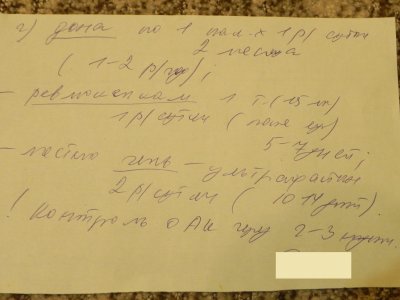 2) дона по 1 пак. х 1 р/сутки
2 месяца
(1-2 р/год);
- ревмоксикам 1 т. (15 мг)
1 р/сутки (после еды)
5-7 дней;
- местно гель - ультрафастин
2 р/сутки (10-14 дней).
! Контроль ОАК через 2-3